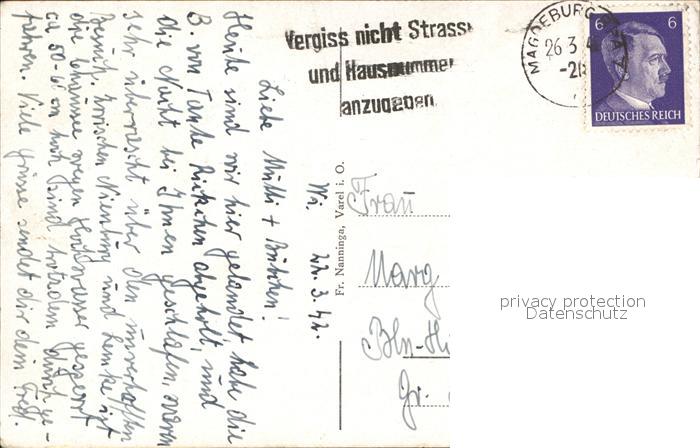 Vergiss nicht Strass
und Hausnummer
anzugeben
MAGDEBURG
26.3.4
6 6
DEUTSCHES REICH
Wi. 22.3.42.
Liebe Mutti + Bübchen!
Heute sind wir hier gelandet, habe die
B. von Tante abgeholt, und
die Nacht bei Ihnen geschlafen, waren
sehr überrascht über den unverhofften
Besuch. Zwischen Nienburg und Lemke ist
die Chaussee wegen Hochwasser gesperrt
ca 50-60 cm hoch sind trotzdem durch ge-
fahren. Viele Grüsse sendet dir dein
Fr. Nanninga, Varel i. O.
Frau
Marg
Bln-Hi
Gr.
privacy protection
Datenschutz